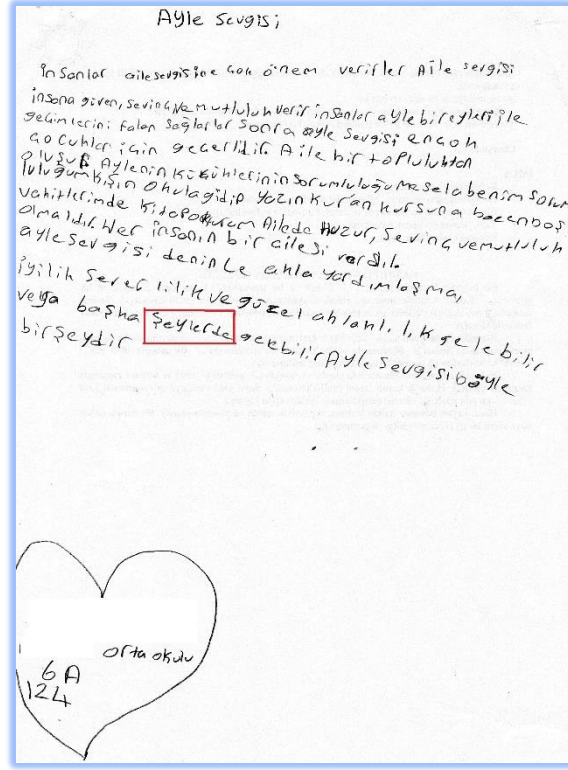 Ayle Sevgisi
insanlar aile sevgisine çok önem verirler Aile sevgisi
insana güven, sevinç ve mutluluk verir insanlar ayle bireyleri ile
geçimlerini falan sağlarlar Sonra ayle sevgisi ençok
çocuklar için geçerlidir. Aile bir topluluktan
oluşur Aylenin küçüklerinin sorumluluğu mesela benim sorum
luluğum kışın okula gidip yazın kur'an kursuna bazen boş
vakitlerimde kitap okurum Ailede Huzur, Sevinç ve mutluluk
olmalıdır. Her insanın bir ailesi vardır.
ayle sevgisi denince akla yardımlaşma,
iyilik severlilik ve güzel ahlaklılık gelebilir
veya başka şeylerde gelebilir Ayle Sevgisi böyle
birşeydir
orta okulu
6A
124